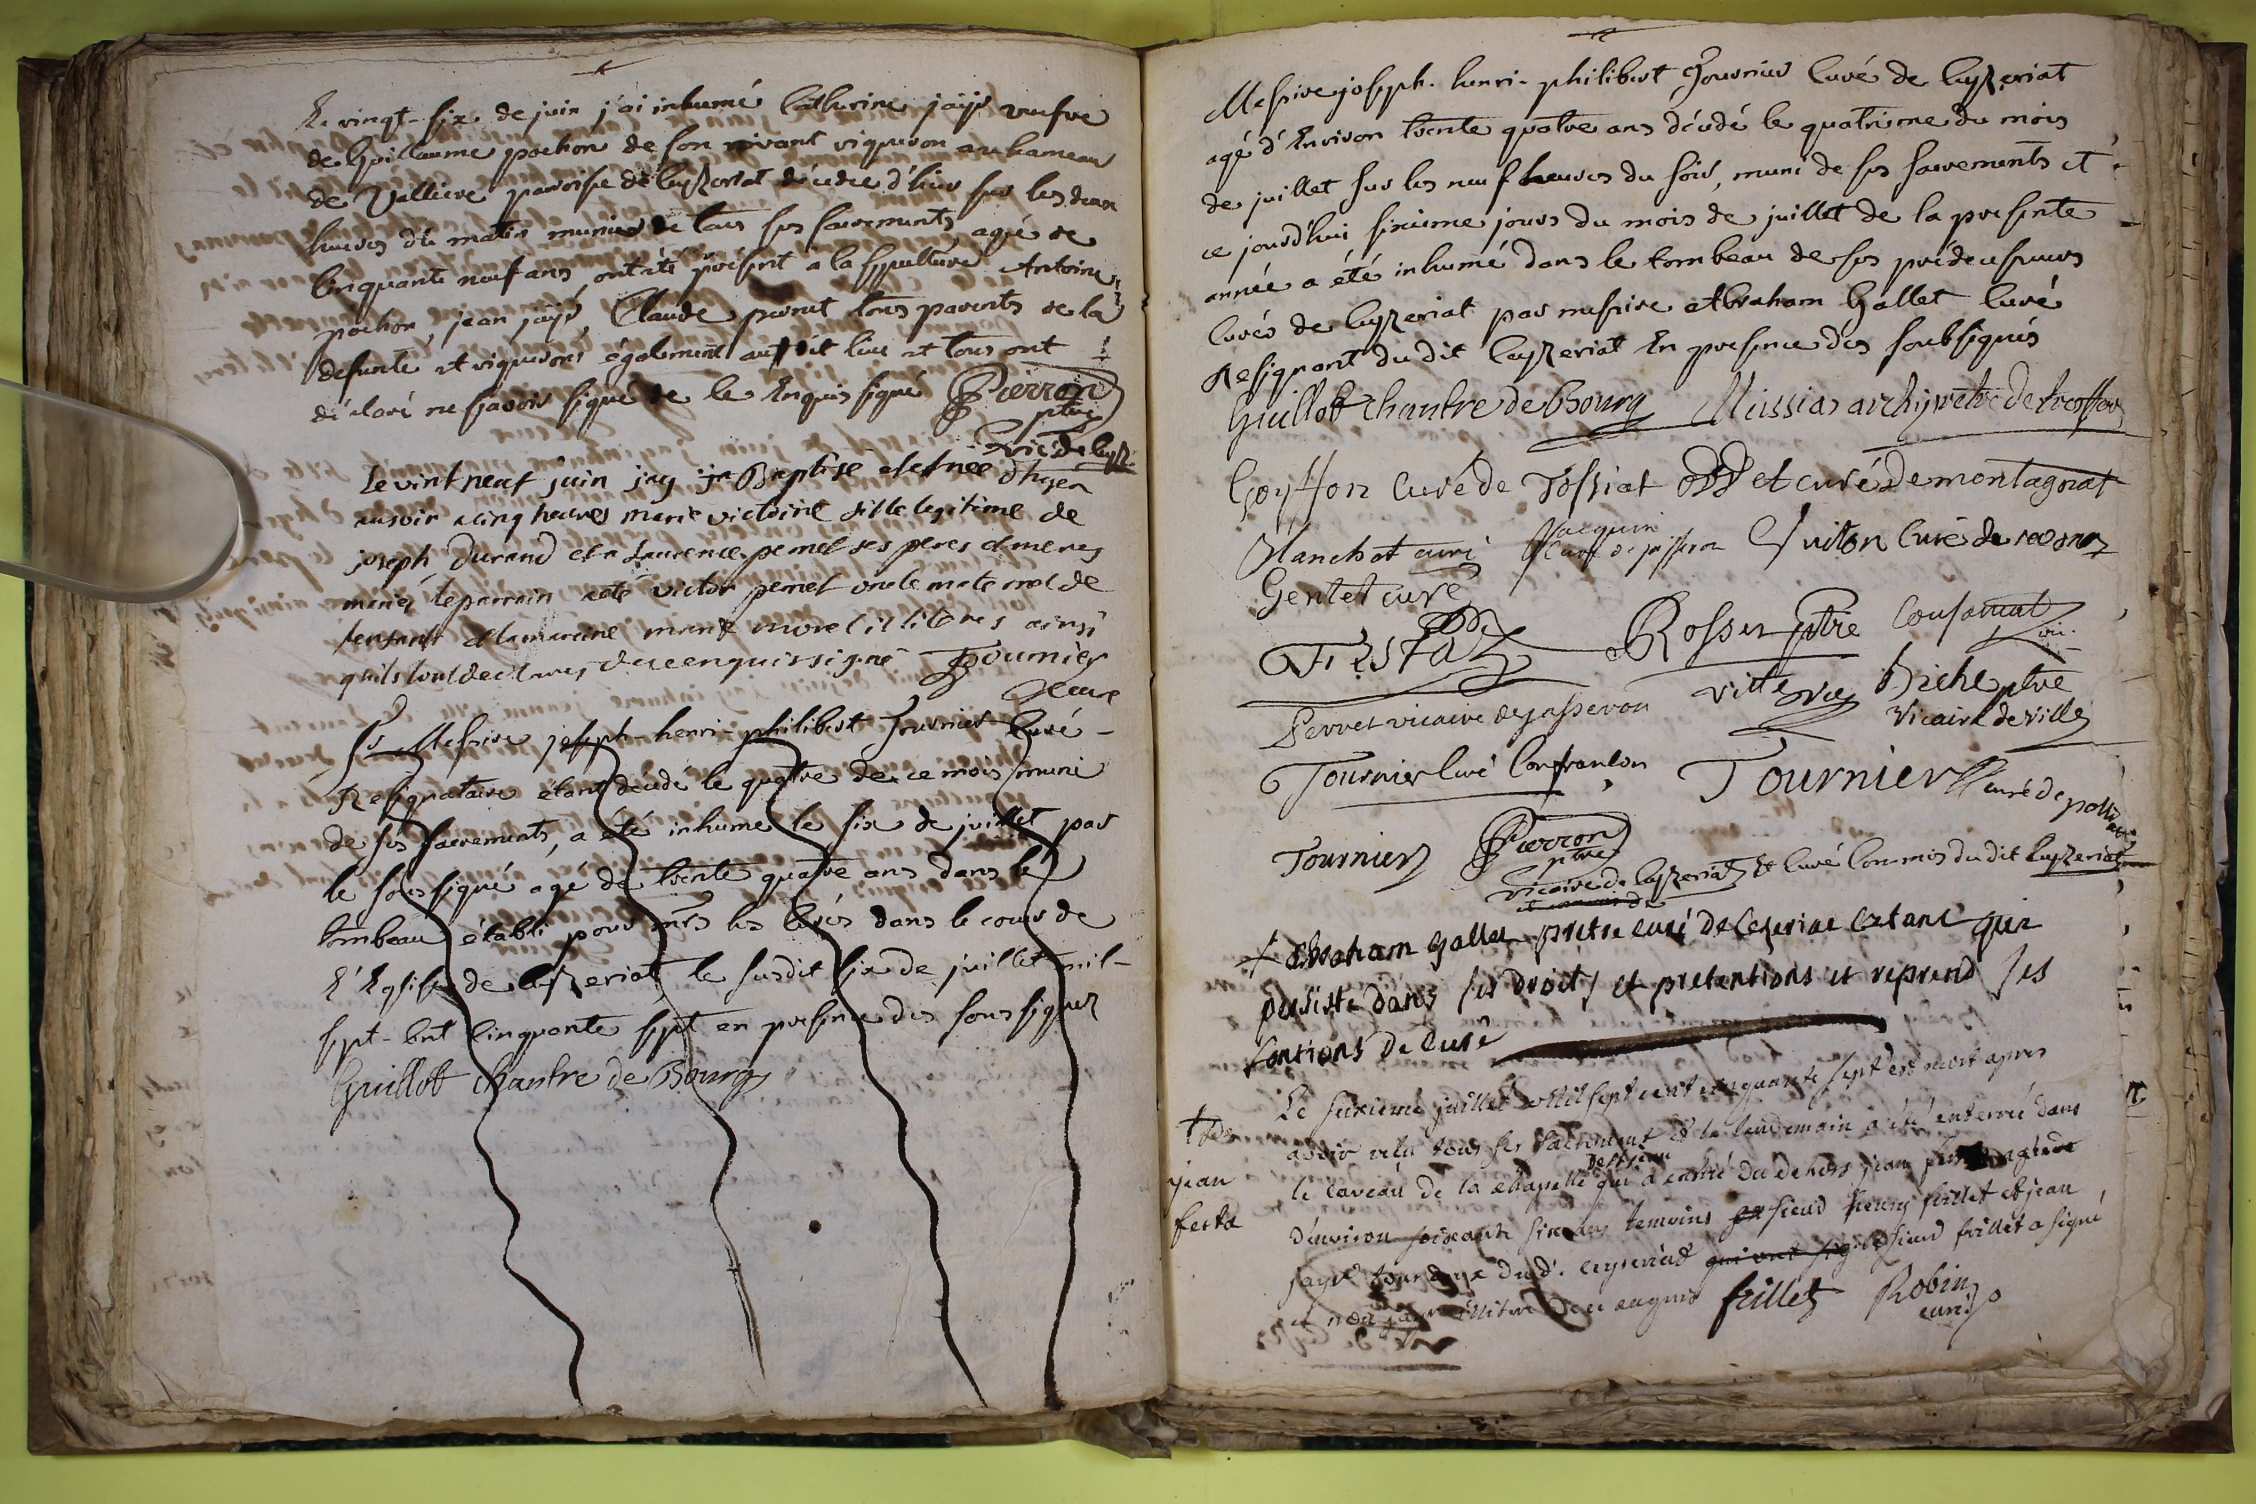 Le vingt-six de juin j'ai inhumé Catherine jaÿr veufve
de Guillaume pochon de son vivant vigneron au hameau
de Valliere paroisse de Ceyzeriat décédée d'hier sur les deux
heures du matin munie de tous ses sacrements, agée de
Cinquante neuf ans, ont été présent a la sépulture Antoine
pochon, jean jaÿr, Claude pernet tous parents de la
defunte et vignerons également audit lieu et tous ont
déclaré ne sçavoir signé de le Enquis signé Pierron
ptre
vic. de Ceyz.
Le vint neuf juin jay Baptisé et et née d'hyer
au soir a cinq heures marie victoire fille legitime de
joseph Durand et a Laurence pernet ses peres et meres
mariés le parrain a eté victor pernet oncle maternel de
lenfant et la marraine marie morel illiteres ainsi
quils lont declares de ce enquis signé Tournier
Cure
Messire joseph-henri-philibert Tournier Curé-
Resignataire étant décédé le quatre de ce mois muni
de ses sacrements, a été inhume le six de juillet par
le soussigné agé de trente quatre ans dans le
tombeau établi pour mrs les Curés dans le cœur de
l'Eglise de Ceyzeriat, le susdit six de juillet mil-
sept-cent cinquante sept en presence des soussignez
Guillot chantre de Bourg
Messire joseph-henri-philibert Tournier Curé de Ceyzeriat
agé d'Environ trente quatre ans décédé le quatrieme du mois
de juillet sur les neuf heures du soir, muni de ses sacrements et
ce jourd'hui sixieme jour du mois de juillet de la presente
année a été inhumé dans le tombeau de ses prédecesseurs
Curés de Ceyzeriat par messire Abraham Gallet Curé
Resignant du dit Ceyzeriat En presence des soubsignés
Guillot Chantre de Bourg Mussia archiprêtre de treffort
Goyffon Curé de Tossiat et curé de montagnat
Planchot curé Jacquin
Curé de jasseron Guiton Curé de revona
Gentet curé
Testaz Rosser ptre
Perret vicaire de jasseron Ville vic. Biche ptre
Vicaire de Ville
Tournier Curé Confrançon Tournier curé de polliat
Tournier Pierron
ptre
vicaire de Ceyzeriat et Curé Commis du dit Ceyzeriat
+ Abraham Gallet pretre curé de Ceseriat Estant qui
persiste dans ses droits et pretentions et reprend ses
fontions de curé
Le sixieme juillet Mil sept cent cinquante sept est mort apres
avoir reçu tous ses sacrements et le lendemain a été enterré dans
le caveau de la chapelle qui a entré du dehors jean agé de
d'environ soixante six ans temoins sieur frillet et jean
jayr du d. ceyzeriat qui ont signé sieur frillet a signé
et non jayr illitere de ce enquis frillet Robin
curé
jean
festa